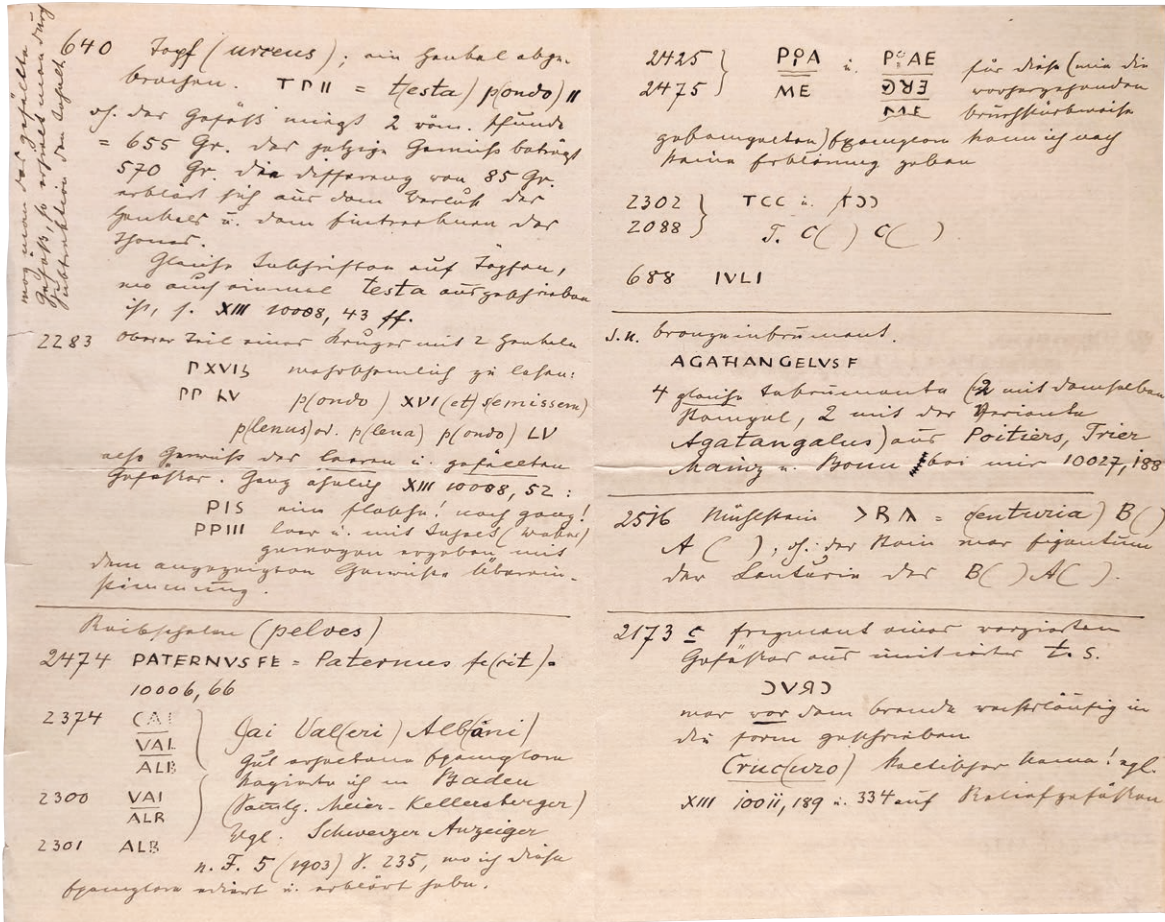 640 Topf (urceus); ein Henkel abge-
brochen. TPII = t(esta) p(ondo) II
d.h. das Gefäß wiegt 2 röm. Pfunde
= 655 Gr. das jetzige Gewicht beträgt
570 Gr. die Differenz von 85 Gr.
erklärt sich aus dem Verlust des
Henkels u. dem Eintrocknen des
Thones.
Gleiche Inschriften auf Töpfen,
wo auch einmal testa ausgeschrieben
ist, s. XIII 10008, 43 ff.
wog man das gefüllte
Gefäß, so erhielt man durch
Subtraktion den Inhalt
2283 oberer Teil eines Kruges mit 2 Henkeln
PXVIS wahrscheinlich zu lesen:
PP LV p(ondo) XVI (et) s(emissem)
p(lenus) od. p(lena) p(ondo) LV
also Gewicht des leeren u. gefüllten
Gefäßes. Ganz ähnlich XIII 10008, 52:
PIS eine Flasche! noch ganz!
PPIII leer u. mit Inhalt (Wasser)
gewogen ergeben mit
dem angezeigten Gewichte Überein-
stimmung.
Reibschalen (pelves)
2474 PATERNVS FE = Paternus fe(cit).
10006, 66
2374 CAI
VAL
ALB
Gai Val(eri) Alb(ani)
Gut erhaltene Exemplare
kopierte ich in Baden
2300 VAL
ALB
(Samlg. Meier-Kellersberger)
Vgl. Schweizer Anzeiger
2301 ALB
n. F. 5 (1903) S. 235, wo ich diese
Exemplare ediert u. erklärt habe.
2425
2475
PPA
ME
u. PPAE
ERG
ME
für diese (wie die
vorhergehenden
bruchstückweise
Exemplare kann ich noch
keine Erklärung geben
2302
2088
TCC u.
T. C( ) C( )
688 IVLI
s.n. Bronzeinstrument.
AGATHANGELVS F
4 gleiche Instrumente (2 mit demselben
Stempel, 2 mit der Variante
Agatangelus) aus Poitiers, Trier
Mainz u. Bonn bei mir 10027, 188
2516 Mühlstein >BA = (centuria) B( )
A ( ), d.h. der Stein war Eigentum
der Centurie des B( ) A( ).
2173 c Fragment eines verzierten
Gefäßes aus imitierter t. s.
CRVC
war vor dem Brande rechtsläufig in
die Form geschrieben
Cruc(uro) keltischer Name! vgl.
XIII 10011, 189 u. 334 auf Reliefgefäßen